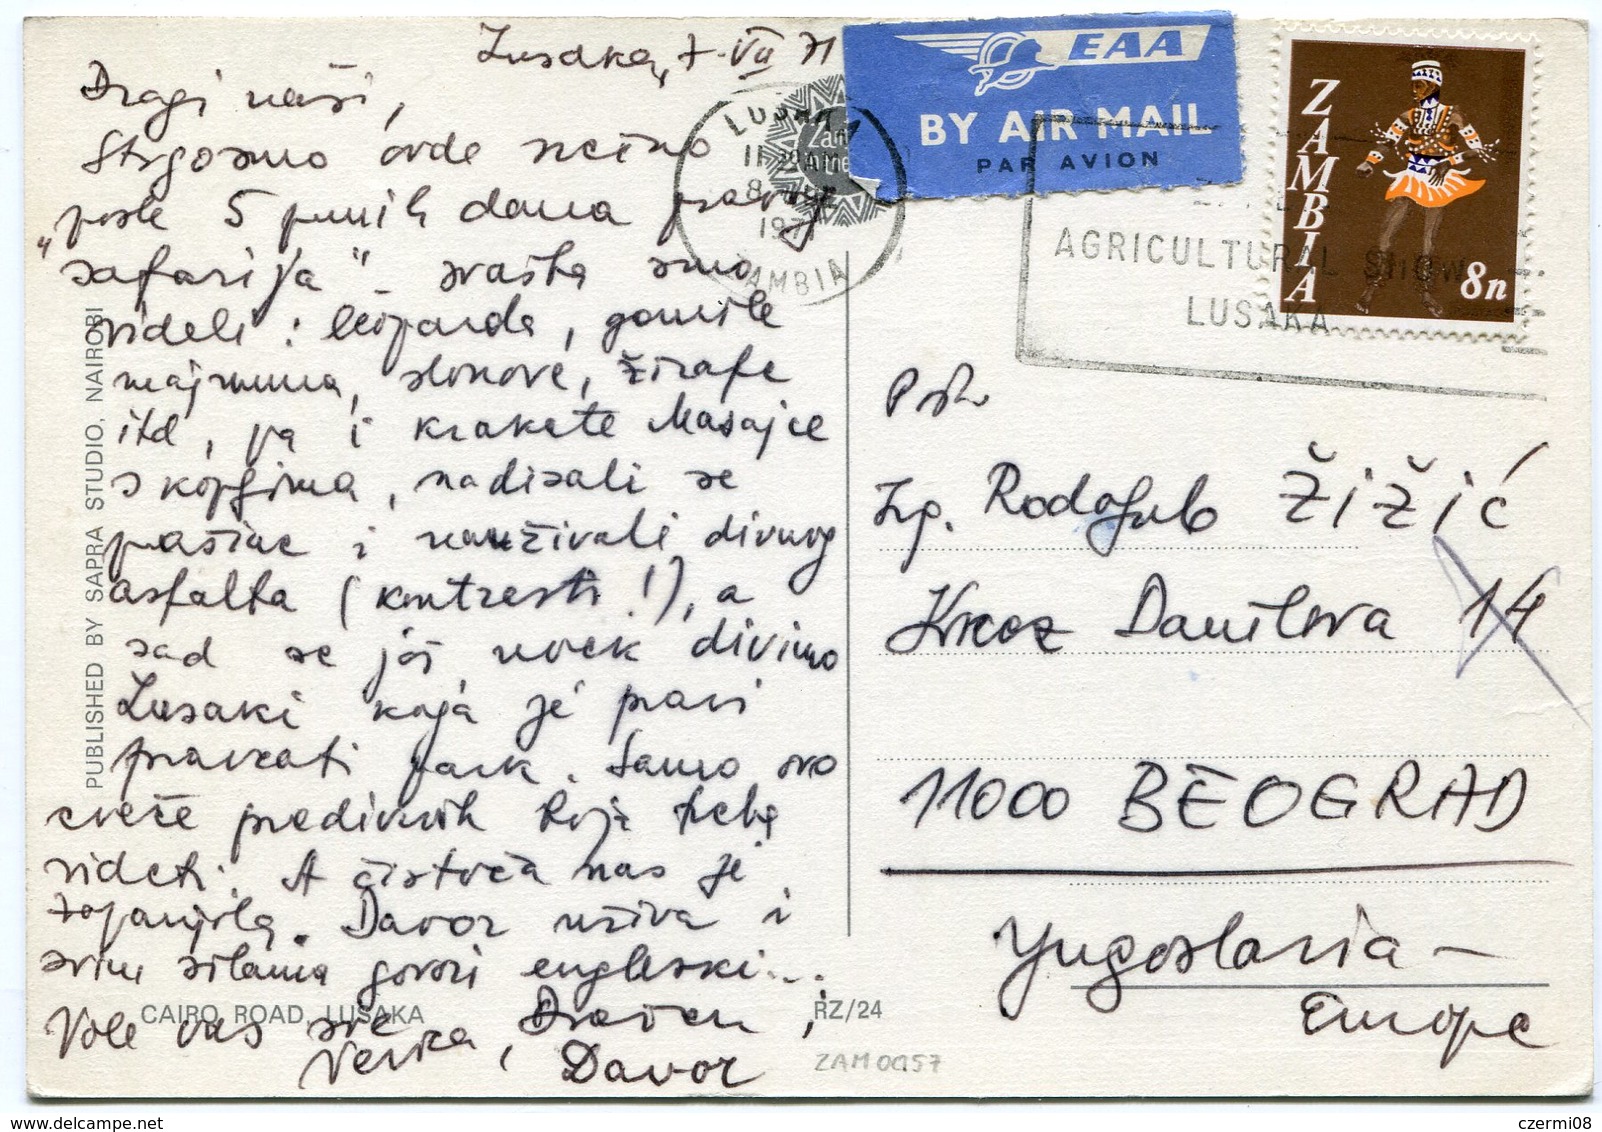 Lusaka, 7. VII 71
Dragi naši,
Stigosmo ovde sinoć
posle 5 punih dana pravog
"safarija" - svašta smo
videli: leoparda, gomile
majmuna, slonove, žirafe
itd, pa i krakate Masajce
s kopljima, nadisali se
prašine i nauživali divnog
asfalta (kontrasti!), a
sad se još uvek divimo
Lusaki koja je pravi
pravcati park. Samo ovo
cveće predivnih boja treba
videti. A čistoća nas je
zapanjila. Davor uživa i
svim silama govori engleski...
Vole vas sve
Verica, Dražen,
Davor
PUBLISHED BY SAPRA STUDIO, NAIROBI
CAIRO ROAD, LUSAKA
RZ/24
ZAM 00157
EAA
BY AIR MAIL
PAR AVION
LUSAKA
1971
ZAMBIA
AGRICULTURAL SHOW
LUSAKA
ZAMBIA
8n
Ing. Radoljub Žižić
Kneza Danilova 14
11000 BEOGRAD
Yugoslavia –
Europe
czermi08